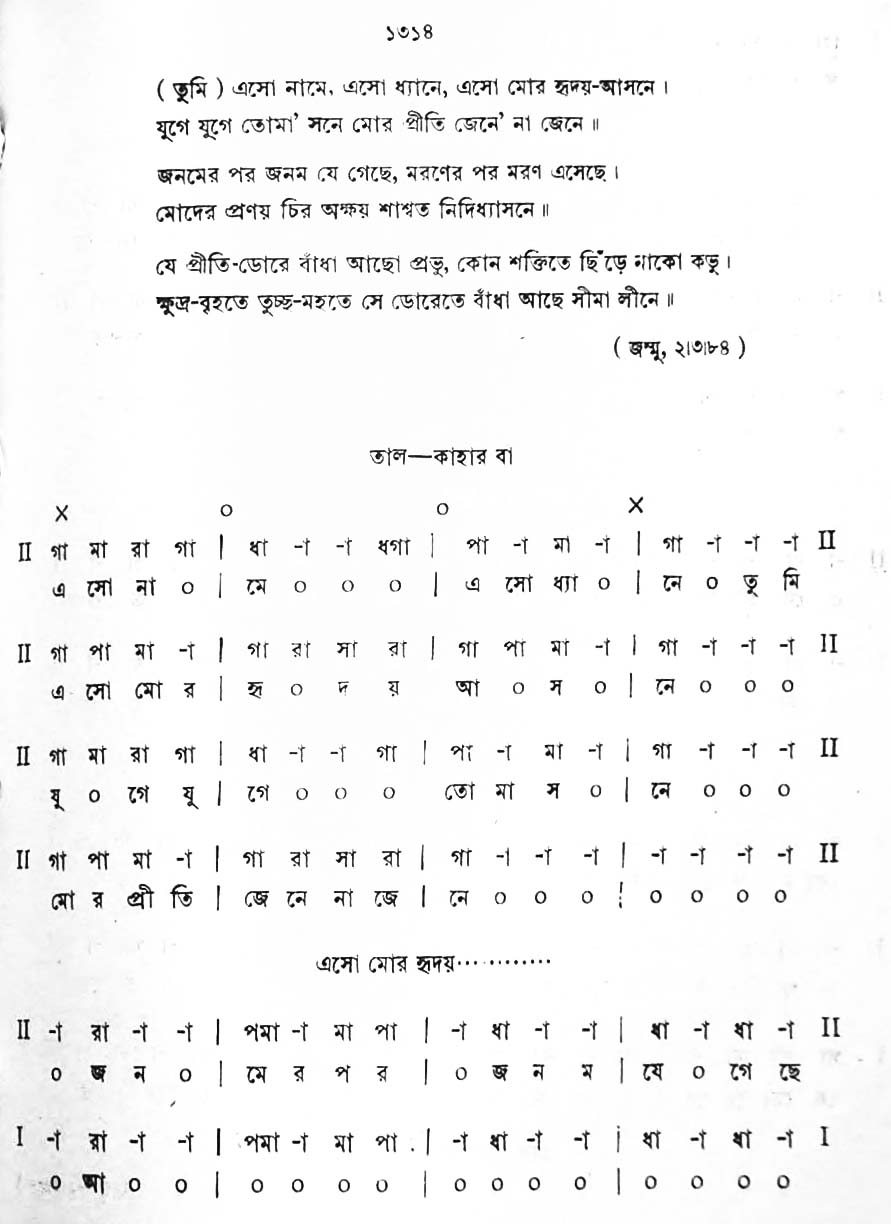 ১৩১৪
( তুমি ) এসো নামে, এসো ধ্যানে, এসো মোর হৃদয়-আসনে ।
যুগে যুগে তোমা' সনে মোর প্রীতি জেনে' না জেনে ॥
জনমের পর জনম যে গেছে, মরণের পর মরণ এসেছে ।
মোদের প্রণয় চির অক্ষয় শাশ্বত নিদিধ্যাসনে ॥
যে প্রীতি-ডোরে বাঁধা আছো প্রভু, কোন শক্তিতে ছিঁড়ে নাকো কভু ।
ক্ষুদ্র-বৃহতে তুচ্ছ-মহতে সে ডোরেতে বাঁধা আছে সীমা লীনে ॥
( জম্মু, ২।৩।৮৪ )
তাল—কাহার বা
X ০ ০ X
II গা মা রা গা | ধা -া -া ধগা | পা -া মা -া | গা -া -া -া II
এ সো না ০ | মে ০ ০ ০ | এ সো ধ্যা ০ | নে ০ তু মি
II গা পা মা -া | গা রা সা রা | গা পা মা -া | গা -া -া -া II
এ সো মো র | হৃ ০ দ য় আ ০ স ০ | নে ০ ০ ০
II গা মা রা গা | ধা -া -া গা | পা -া মা -া | গা -া -া -া II
যু ০ গে যু | গে ০ ০ ০ তো মা স ০ | নে ০ ০ ০
II গা পা মা -া | গা রা সা রা | গা -া -া -া | -া -া -া -া II
মো র প্রী তি | জে নে না জে | নে ০ ০ ০ | ০ ০ ০ ০
এসো মোর হৃদয়············
II -া রা -া -া | পমা -া মা পা | -া ধা -া -া | ধা -া ধা -া II
০ জ ন ০ | মে র প র | ০ জ ন ম | যে ০ গে ছে
I -া রা -া -া | পমা -া মা পা . | -া ধা -া -া | ধা -া ধা -া I
০ আ ০ ০ | ০ ০ ০ ০ | ০ ০ ০ ০ | ০ ০ ০ ০